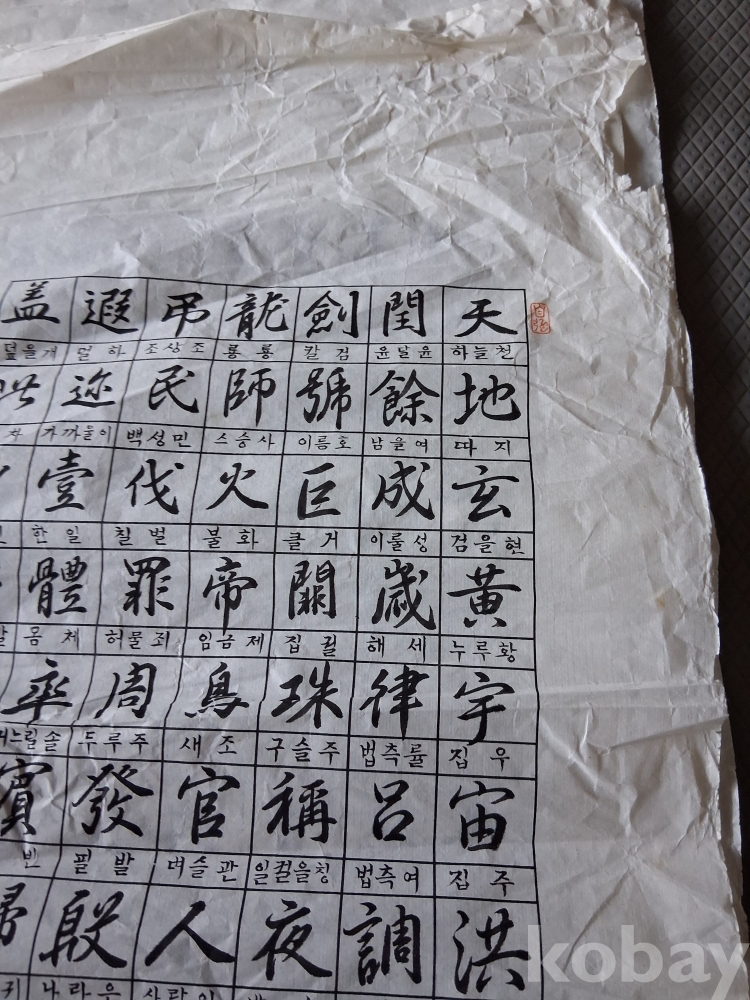 天 하늘천 地 따지 玄 검을현 黃 누루황 宇 집우 宙 집주 洪
閏 윤달윤 餘 남을여 成 이룰성 歲 해세 律 법측률 呂 법측여 調
劍 칼검 號 이름호 巨 클거 闕 집궐 珠 구슬주 稱 일컬을칭 夜
龍 룡룡 師 스승사 火 불화 帝 임금제 鳥 새조 官 벼슬관 人
弔 조상조 民 백성민 伐 칠벌 罪 허물죄 周 두루주 發 필발 殷
遐 멀하 迩 가까울이 壹 한일 體 몸체 率 거느릴솔 賓 빈
盖 덮을개
kobay